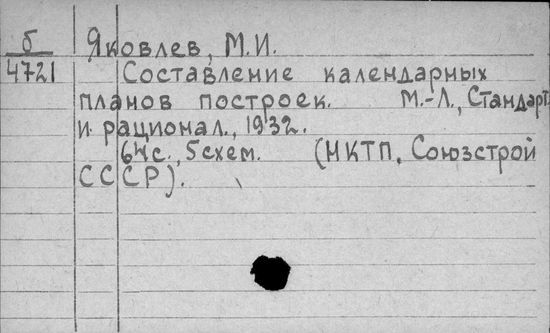 б Яковлев, М.И.
4721 Составление календарных
планов построек. М.-Л., Стандарт.
и рационал., 1932.
64с., 5 схем. (НКТП, Союзстрой
СССР).